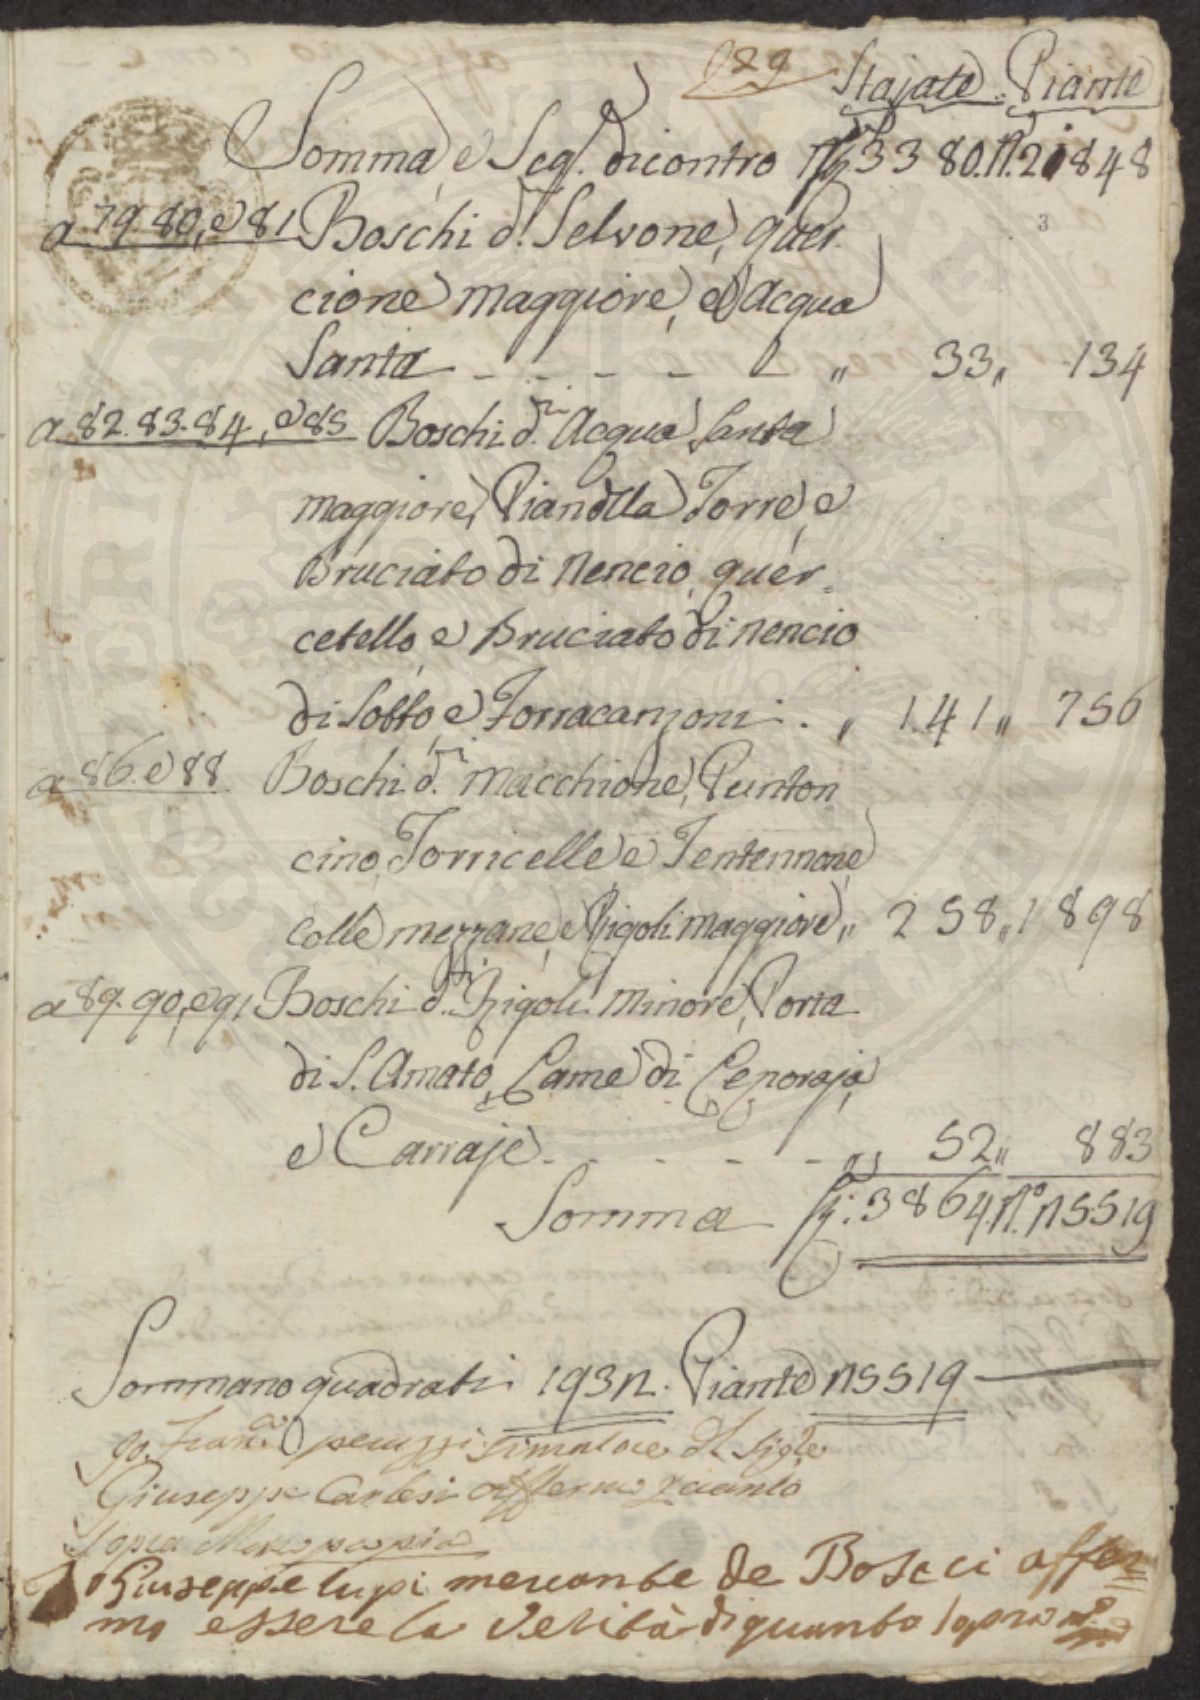 189
Stajate. Piante
Somma, e Seg. di contro Stj. 3380. N. 21848
a 79. 80, e 81 Boschi d. Selvone, Quer-
cione maggiore, ed Acqua
Santa - - - - - " 33 " 134
a 82. 83. 84, e 85 Boschi d.ti Acqua Santa
maggiore, Pian della Torre, e
Bruciato di Nencio, Quer-
cetello, e Bruciato di Nencio
di Sotto, e Forracanzoni . " 141 " 756
a 86. e 88 Boschi d.ti Macchione, Punton
cino, Torricelle e Tentennone
colle mezzane, e Rigoli maggiore " 258 " 1898
a 89. 90, e 91 Boschi d.ti Rigoli Minore, Porta
di S. Amato, Lame di Ceporaja
e Carraje - - - - - " 52 " 883
Somma Stj: 3864. N.o 25519
Sommano quadrati 1932. Piante 25519
Giuseppe Carlesi Affermo quanto
sopra Mano propria
Io Giuseppe Lupi mercante de Boscci affer=
mo essere la verità di quanto sopra
3